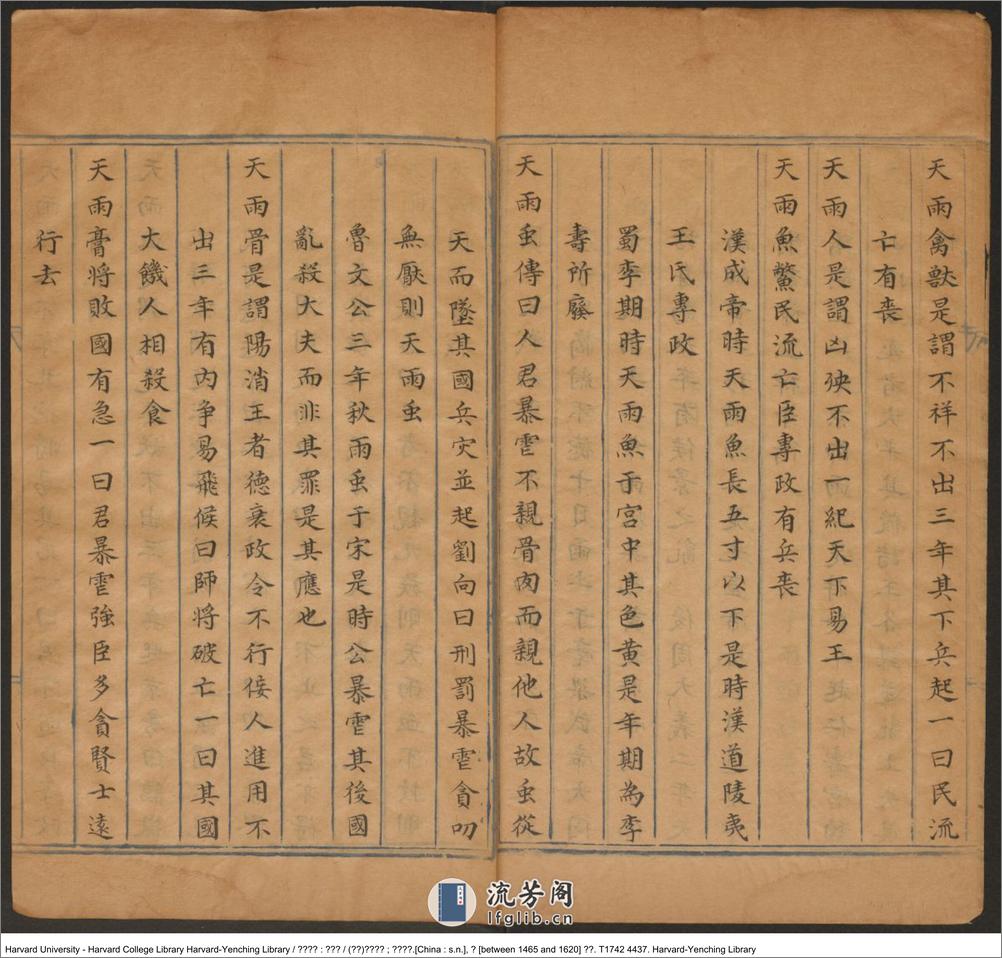 天雨禽獸是謂不祥不出三年其下兵起一曰民流
亡有喪
天雨人是謂凶殃不出一紀天下易王
天雨魚鱉民流亡臣專政有兵喪
漢成帝時天雨魚長五寸以下是時漢道陵夷
王氏專政
蜀李期時天雨魚于宮中其色黄是年期為李
壽所廢
天雨虫傳曰人君暴虐不親骨肉而親他人故虫從
天而墜其國兵灾並起劉向曰刑罰暴虐貪叨
無厭則天雨虫
魯文公三年秋雨虫于宋是時公暴虐其後國
亂殺大夫而非其罪是其應也
天雨骨是謂陽消王者德衰政令不行佞人進用不
出三年有内争易飛候曰師将破亡一曰其國
大饑人相殺食
天雨膏将敗國有急一曰君暴虐強臣多貪賢士遠
行去
流芳阁
lfglib.cn
Harvard University - Harvard College Library Harvard-Yenching Library / ???? : ??? / (??)???? ; ????.[China : s.n.], ? [between 1465 and 1620] ??. T1742 4437. Harvard-Yenching Library